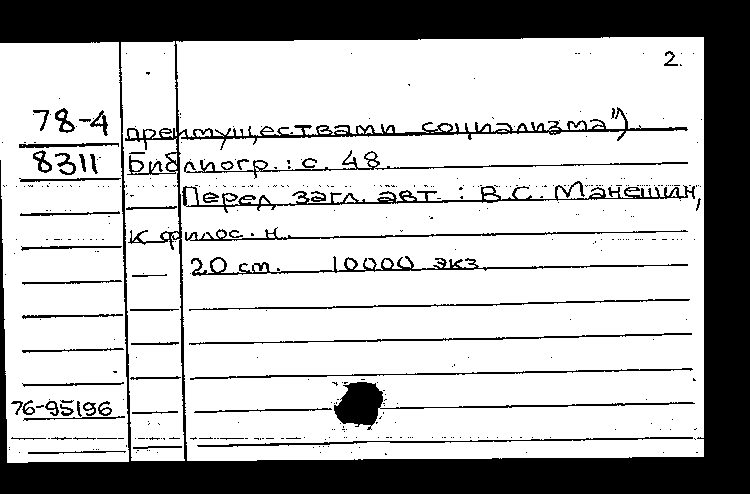 2.
78-4 преимуществами социализма")
8311 Библиогр.: с. 48.
Перед загл. авт.: В.С. Манешин,
к филос. н.
20 cm. 10000 экз.
76-95196